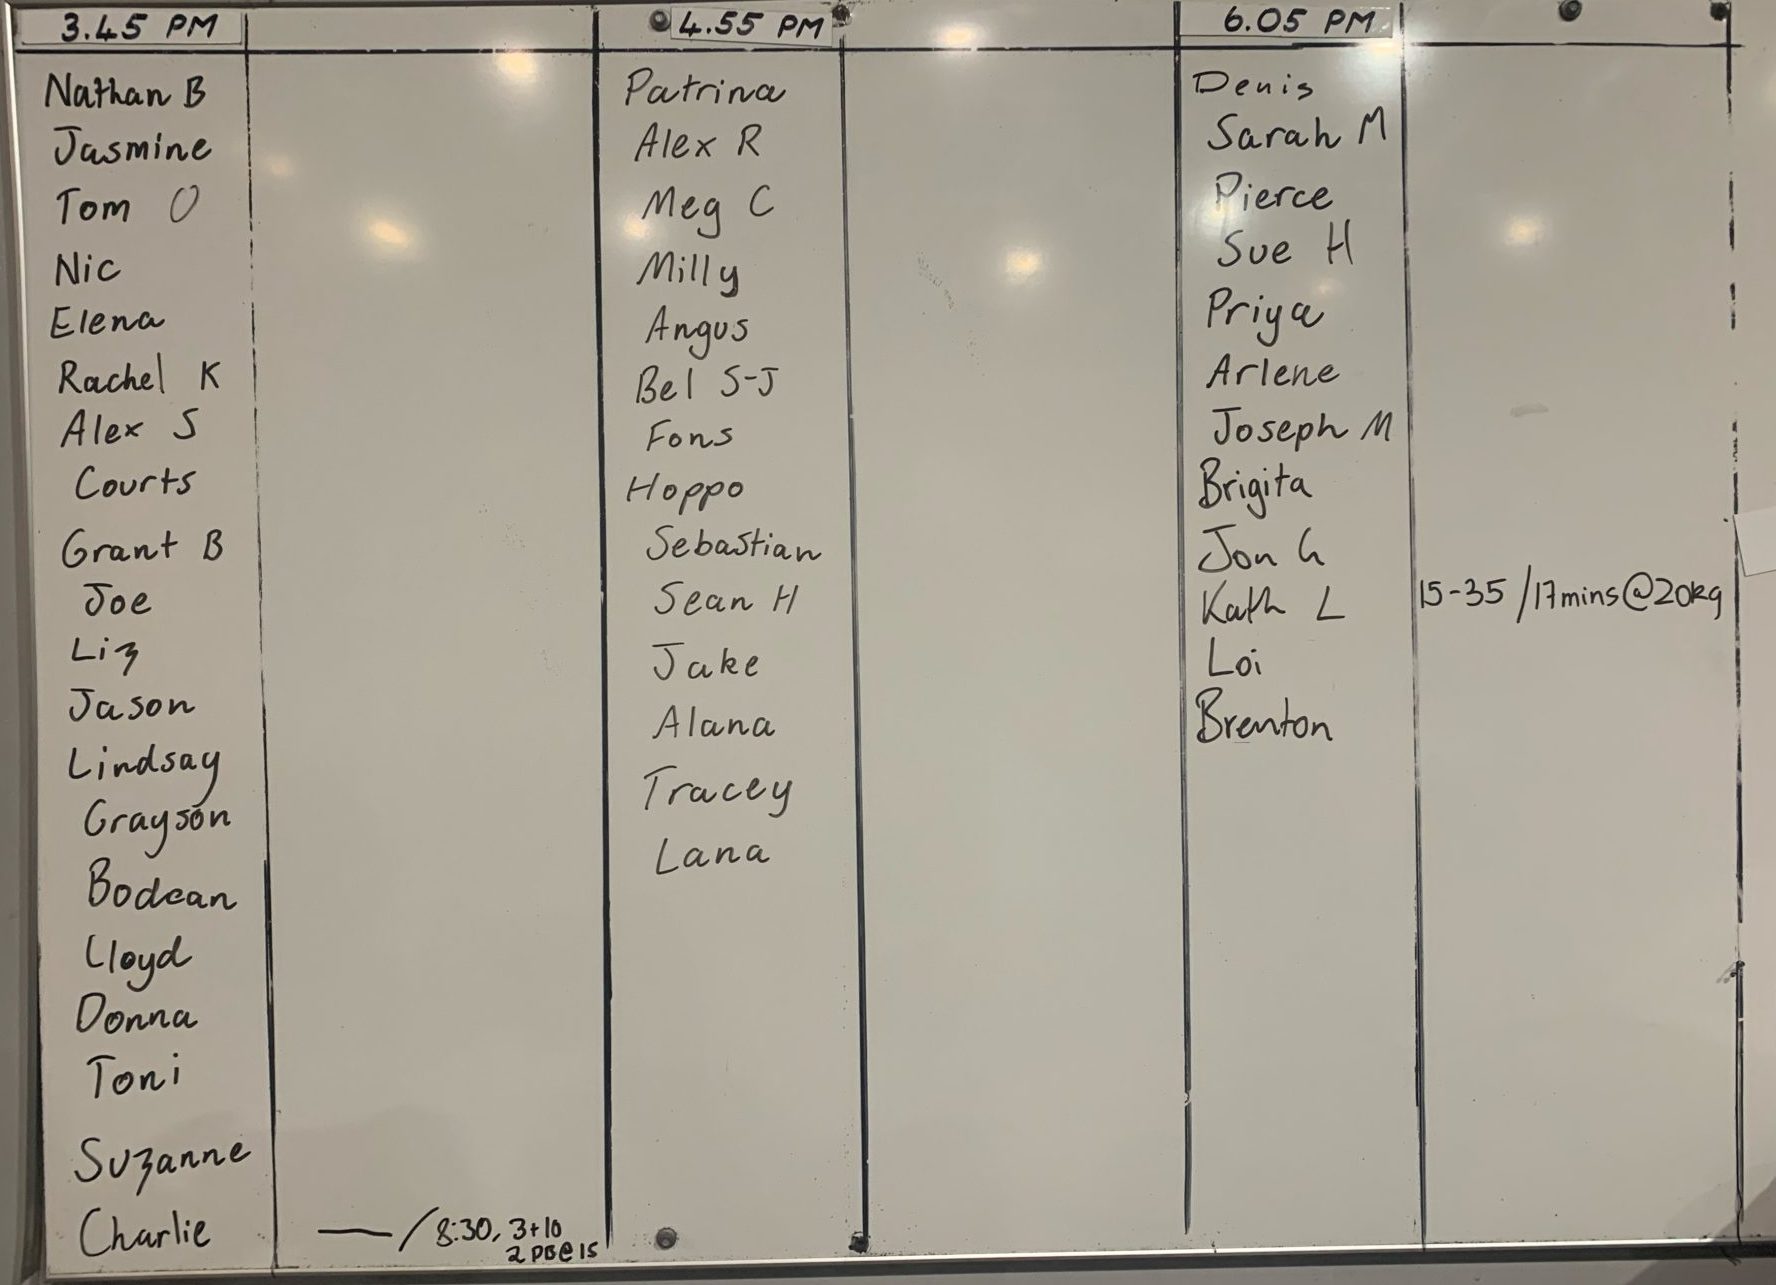 3.45 PM
Nathan B
Jasmine
Tom O
Nic
Elena
Rachel K
Alex S
Courts
Grant B
Joe
Liz
Jason
Lindsay
Grayson
Bodean
Lloyd
Donna
Toni
Suzanne
Charlie — / 8:30, 3+10
2 PB@15
4.55 PM
Patrina
Alex R
Meg C
Milly
Angus
Bel S-J
Fons
Hoppo
Sebastian
Sean H
Jake
Alana
Tracey
Lana
6.05 PM
Denis
Sarah M
Pierce
Sue H
Priya
Arlene
Joseph M
Brigita
Jon G
Kath L 15-35 /17mins@20kg
Loi
Brenton